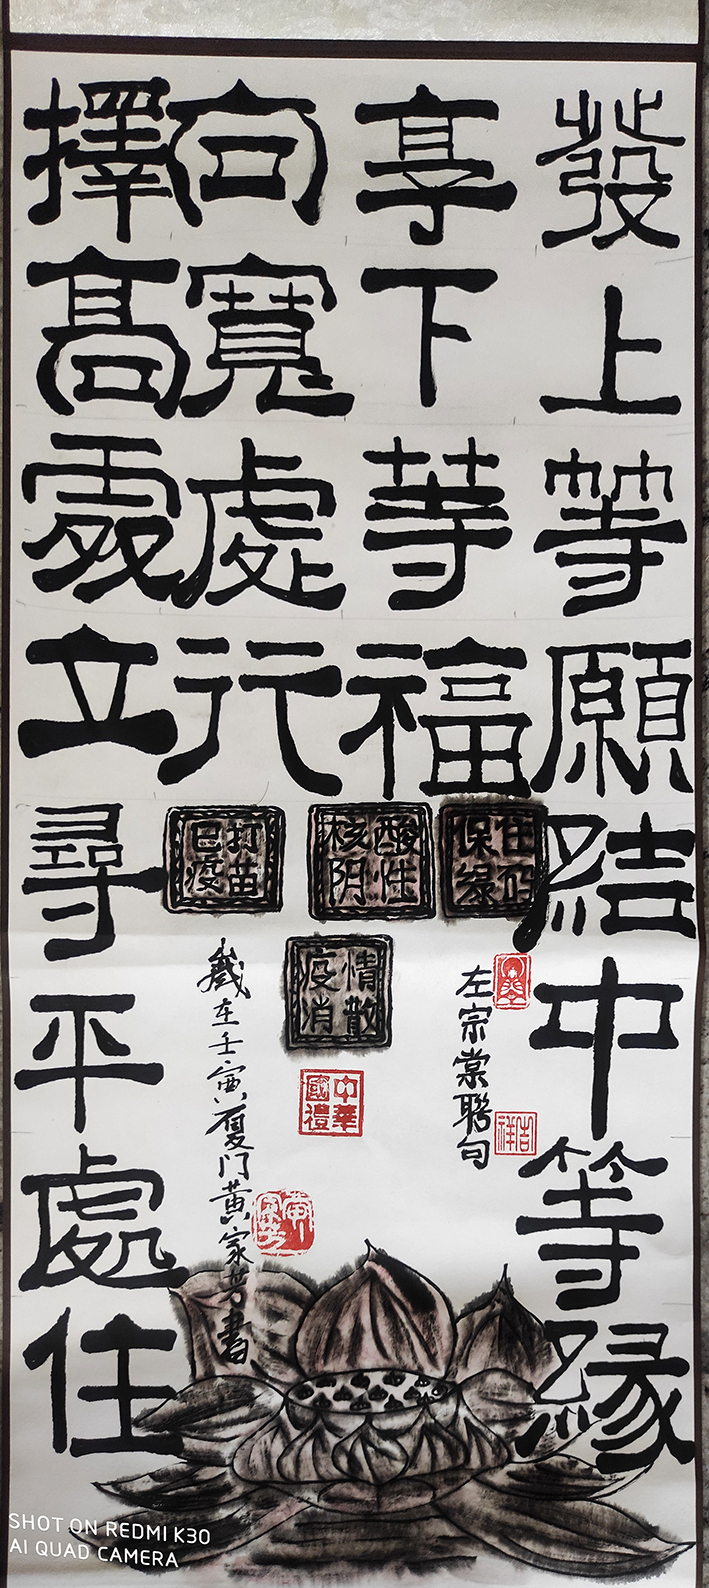 發上等願結中等緣
享下等福
向寬處行
擇髙處立尋平處住
保
核酸
阴性
打苗
已疫
疫情
消散
左宗棠聯句
吉祥
中華
國禮
歲在壬寅厦门黄家芳書
SHOT ON REDMI K30
AI QUAD CAMERA